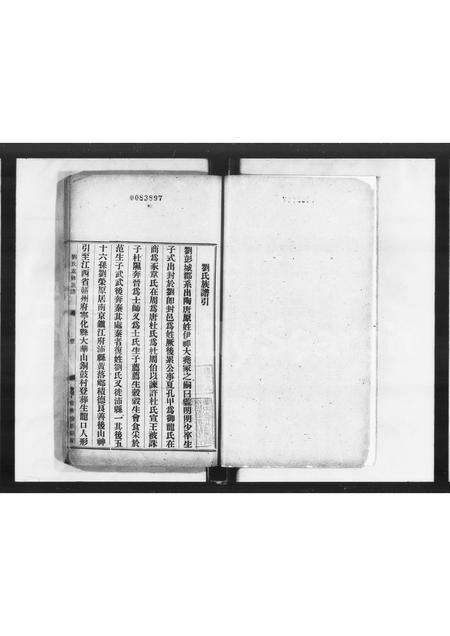 0083897
劉氏族譜引
劉彭城郡系出陶唐厥姓伊祁大堯家之嗣曰監明明少卒生
子式出封於劉卽封邑爲姓厥後累公事夏孔甲爲御龍氏在
商爲豕韋氏在周爲唐杜氏爲杜周伯以諫許杜氏宣王被誅
子杜隰奔晉爲士師又爲士氏生子蔿蔿生穀穀生會食采於
范生子武武後奔秦其處秦者復姓劉氏又徙沛縣一其後五
十六孫劉榮原居南京鎮江府沛縣黃落鄉積德良善後山崩
引至江西省贛州府寧化縣大華山銅鼓村登葬生龍口人形